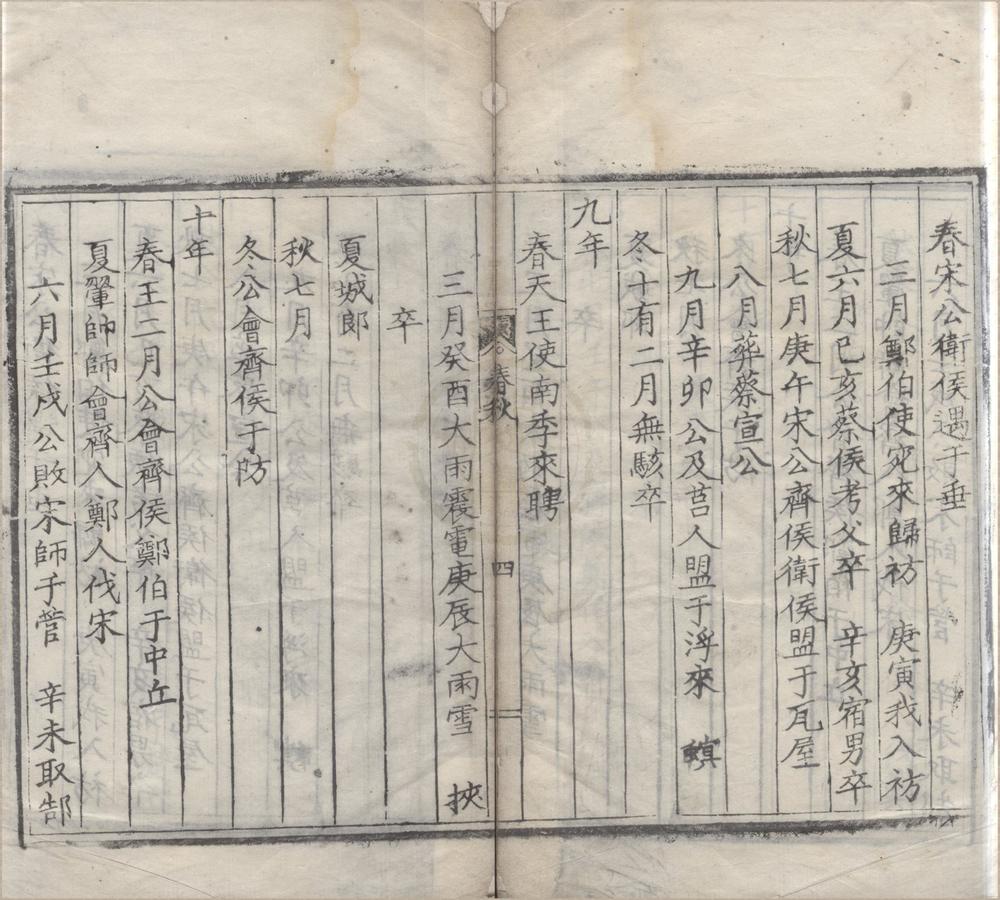 春宋公衛侯遇于垂
三月鄭伯使宛來歸祊　庚寅我入祊
夏六月己亥蔡侯考父卒　辛亥宿男卒
秋七月庚午宋公齊侯衛侯盟于瓦屋
八月葬蔡宣公
九月辛卯公及莒人盟于浮來　螟
冬十有二月無駭卒
九年
春天王使南季來聘
春秋　四
三月癸酉大雨震電庚辰大雨雪　挾
卒
夏城郎
秋七月
冬公會齊侯于防
十年
春王二月公會齊侯鄭伯于中丘
夏翬帥師會齊人鄭人伐宋
六月壬戌公敗宋師于菅　辛未取郜